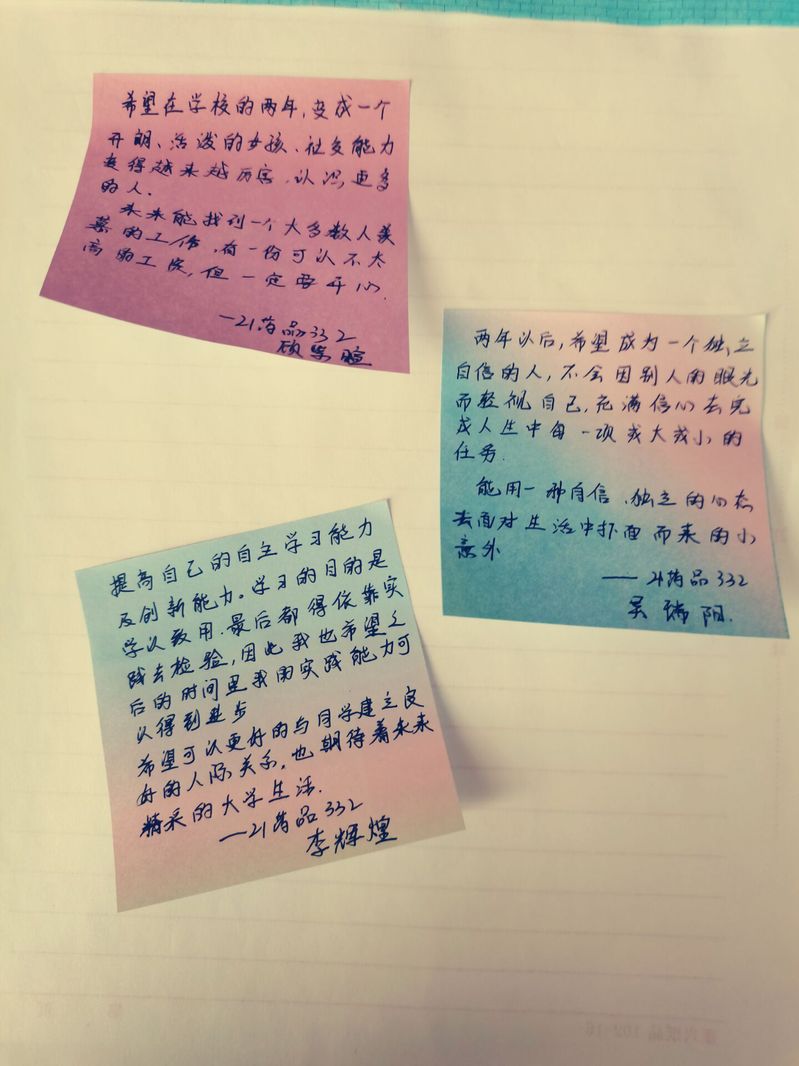 希望在学校的两年，变成一个
开朗、活泼的女孩、社交能力
变得越来越厉害，认识更多
的人．
未来能找到一个大多数人羡
慕的工作，有一份可以不太
高的工资，但一定要开心．
—21药品332
两年以后，希望成为一个独立
自信的人，不会因别人的眼光
而轻视自己，充满信心去完
成人生中每一项或大或小的
任务．
能用一种自信、独立的心态
去面对生活中扑面而来的小
意外
——21药品332
吴瑞阳．
提高自己的自主学习能力
及创新能力。学习的目的是
学以致用．最后都得依靠实
践去检验，因此我也希望之
后的时间里我的实践能力可
以得到进步
希望可以更好的与同学建立良
好的人际关系，也期待着未来
精采的大学生活．
—21药品332
李辉煌